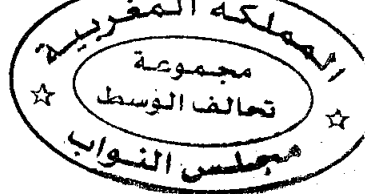 المملكة المغربية
مجموعة
تحالف الوسط
مجلس النواب